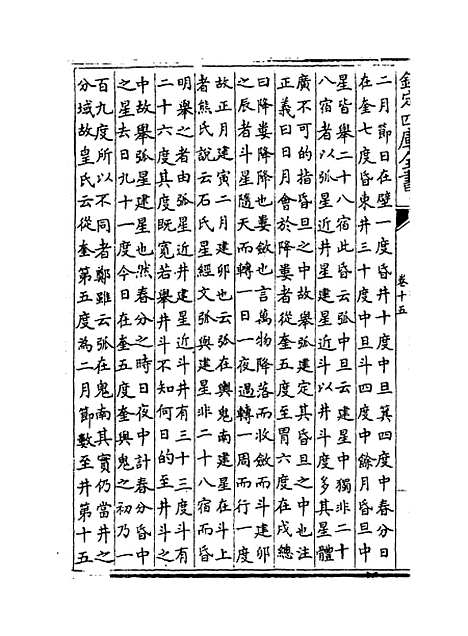 欽定四庫全書
卷十五
二月節日在壁一度昏井十度中旦箕四度中春分日
在奎七度昏東井三十度中旦斗四度中餘月昏旦中
星皆舉二十八宿此昏云弧中旦云建星中獨非二十
八宿者以弧星近井建星近斗以井斗度多其星體
廣不可的指昏旦之中故舉弧建定其昏旦之中也注
正義曰日月會於降婁者從奎五度至胃六度在戌總
曰降婁降降也婁斂也言萬物降落而收斂而斗建卯
之辰者斗星隨天而轉一日一夜過轉一周而行一度
故正月建寅二月建卯也云弧在輿鬼南建星在斗上
者熊氏說云石氏星經文弧與建星非二十八宿而昏
明舉之者由弧星近井建星近斗井有三十三度斗有
二十六度其度既寛若舉井斗不知何日的至井斗之
中故舉弧星建星也然春分之時日夜中計春分昏中
之星去日九十一度今日在奎五度奎與鬼之初乃一
百九度所以不同者鄭雖云弧在鬼南其實仍當井之
分域故皇氏云從奎第五度為二月節數至井第十五